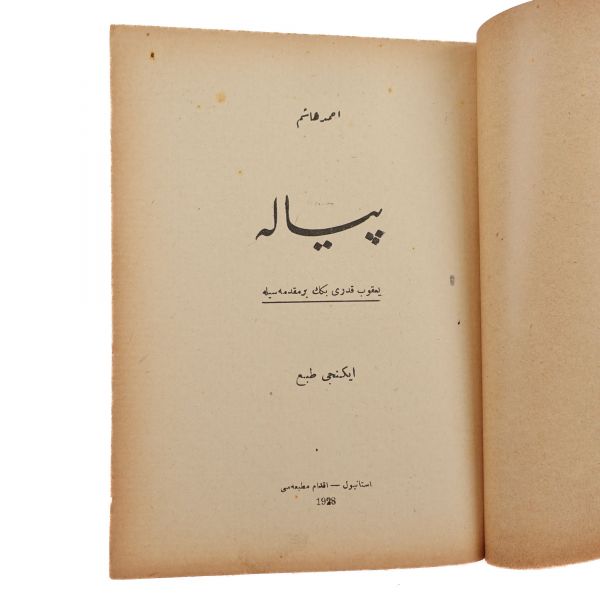 احمد هاشم
پياله
يعقوب قدرى بكك بر مقدمه سيله
ايكنجى طبع
استانبول — اقدام مطبعه سى
1928